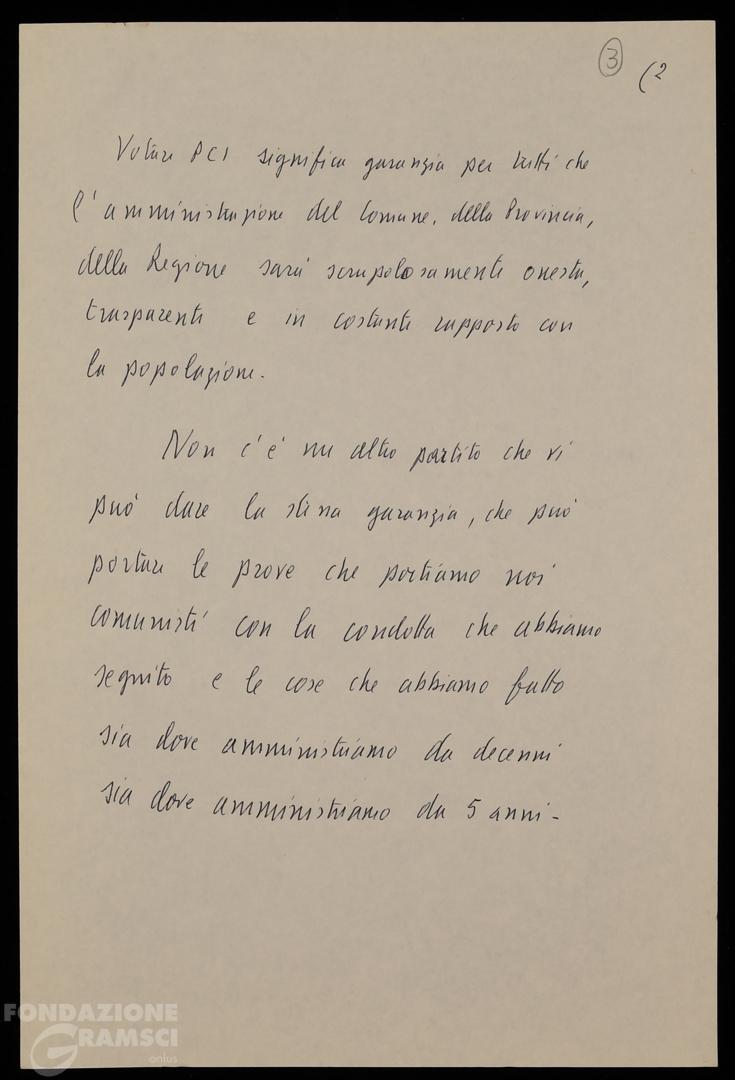 3
(2
Votare PCI significa garanzia per tutti che
l'amministrazione del Comune, della Provincia,
della Regione sarà scrupolosamente onesta,
trasparente e in costante rapporto con
la popolazione.
Non c'è un altro partito che vi
può dare la stessa garanzia, che può
portare le prove che portiamo noi
comunisti con la condotta che abbiamo
seguito e le cose che abbiamo fatto
sia dove amministriamo da decenni
sia dove amministriamo da 5 anni -
FONDAZIONE
GRAMSCI
onlus